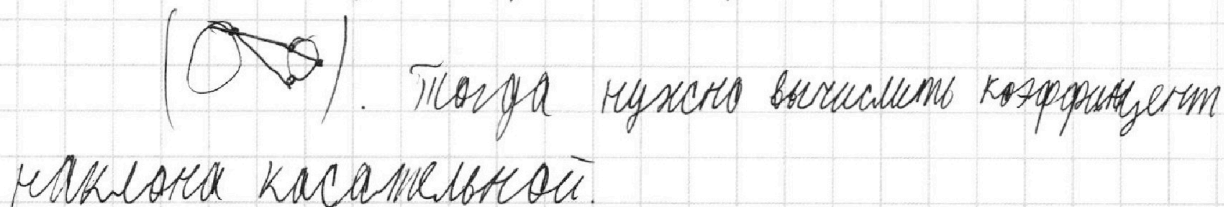 ( ). Тогда нужно вычислить коэффициент
наклона касательной.